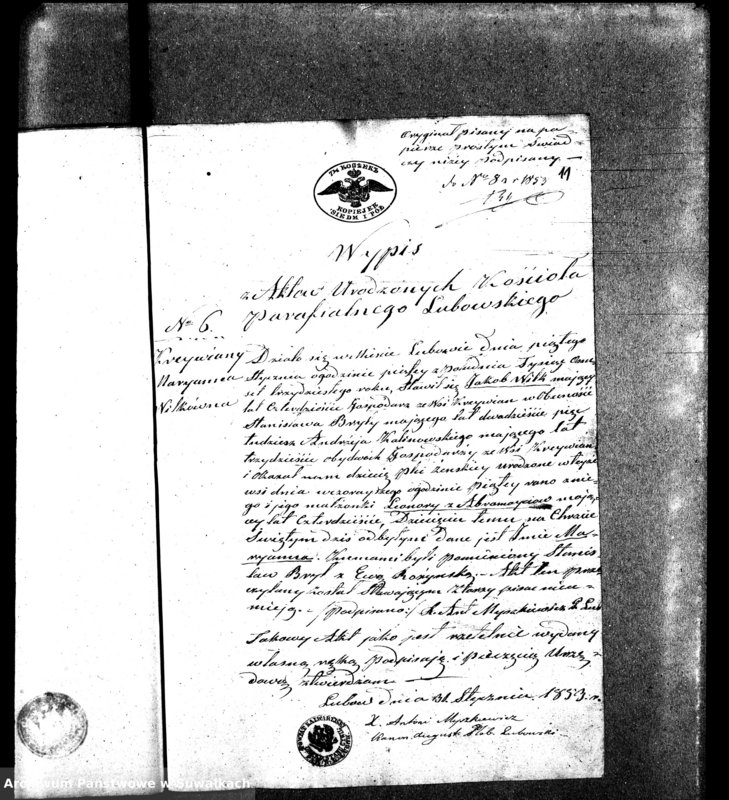 Oryginał pisany na pa-
pierze prostym świad-
czy niżey podpisany —
do Nr 8 r. 1853
11
7½ KOPIEEK
KOPIEJEK
SIEDM I PÓŁ
Wypis
z Aktow Urodzonych Kościoła
Parafialnego Lubowskiego
No 6.
Krzywiany
Maryanna
Wilkówna
Działo się w Mieście Lubowie dnia piątego
Stycznia o godzinie piątey z południa Tysiąc Ośm-
set trzydziestego roku, Stawił się Jakob Wilk mający
lat Czterdzieście Gospodarz ze Wsi Krzywian w obecności
Stanisława Bryły mającego lat dwadzieście pięć
tudzież Andrzeja Kalinowskiego mającego lat
trzydzieście obydwóch Gospodarzy ze Wsi Krzywian
i okazał nam dziecię płci żenskiey urodzone w teyże
wsi dnia wczorayszego o godzinie piątey rano z nie-
go i jego małżonki Leonory z Abramaysow mają-
cey lat Czterdzieście, Dziecięciu temu na Chrzcie
Swiętym dziś odbytym dane jest Imie Ma-
ryanna. Kumami byli pomieniony Stanis-
ław Brył z Ewą Rożynską — Akt ten prze-
czytany został Stawającym którzy pisac nieu-
mieją. — /podpisano:/ X. Ant Myszkiewicz P. Lub
Takowy Akt jako jest rzetelnie wydany
własną ręką podpisuję i pieczęcią Urzę-
dową stwierdzam —
Lubow dnia 31 Stycznia 1853 r.
X. Antoni Myszkiewicz
Kanon. August. Pleb. Lubowski
Archiwum Państwowe w Suwałkach